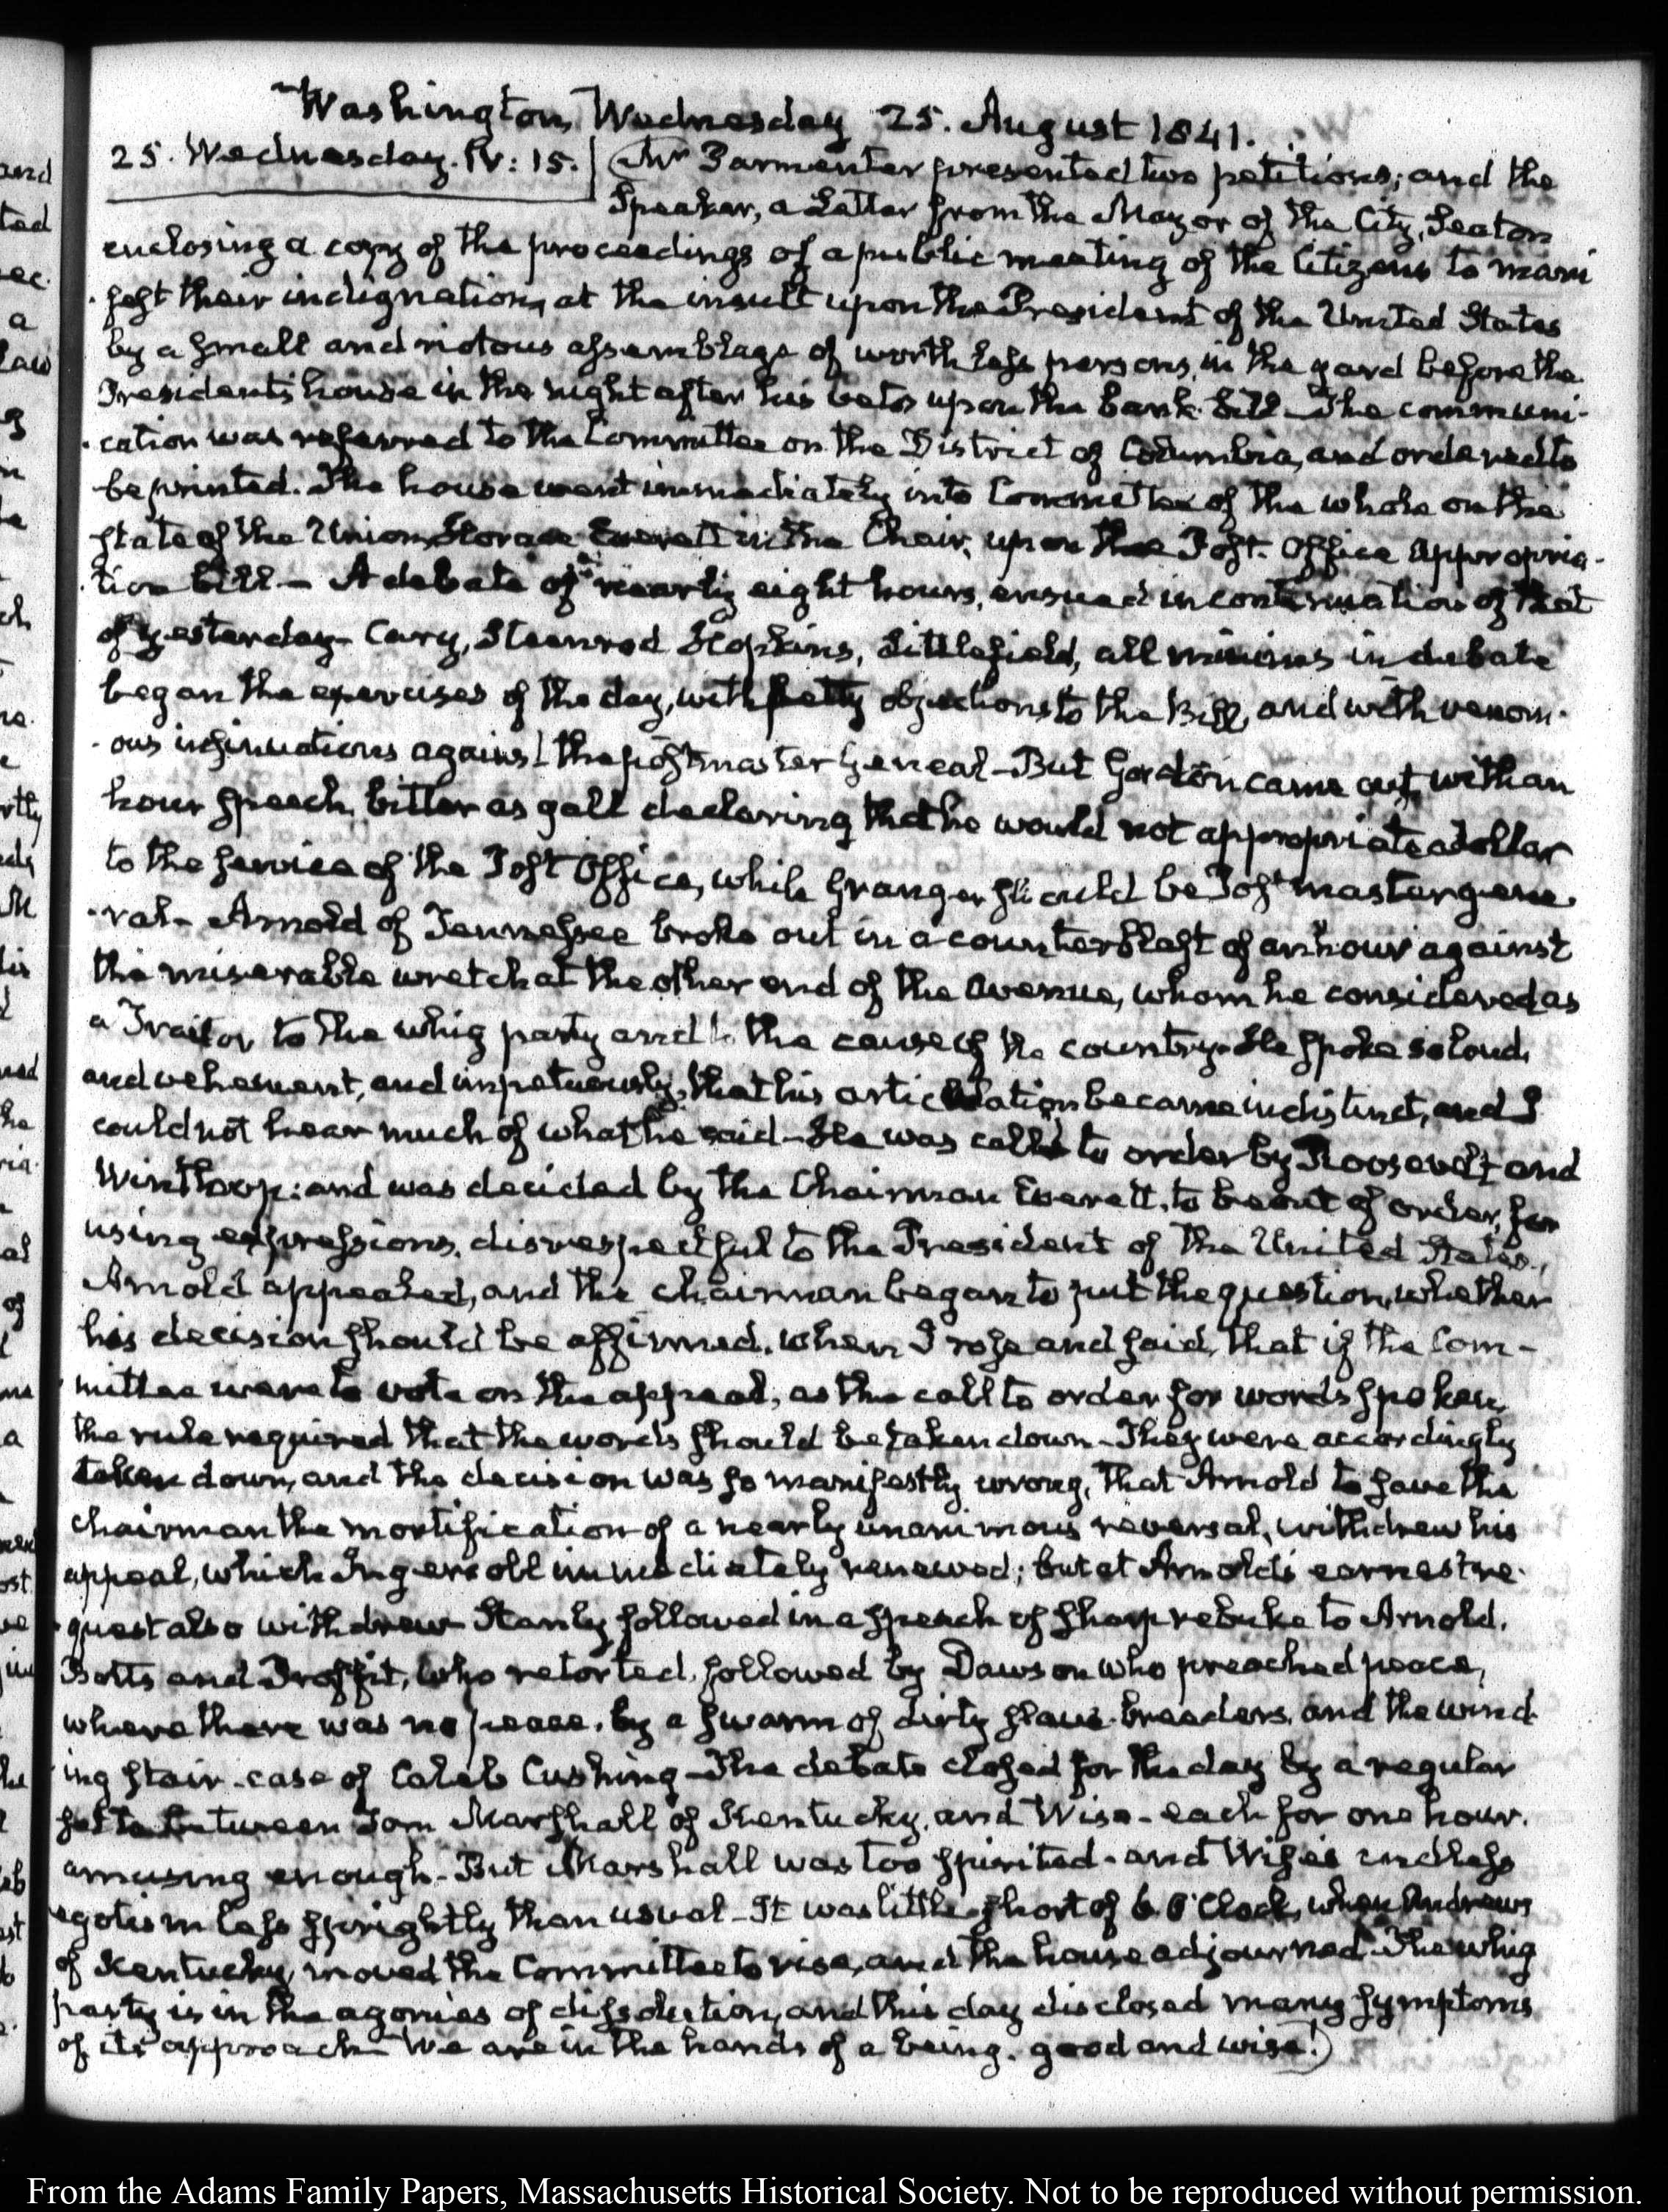 Washington, Wednesday 25. August 1841.
25. Wednesday. IV: 15. Mr Parmenter presented two petitions; and the
Speaker, a Letter from the Mayor of the City, Seaton
enclosing a copy of the proceedings of a public meeting of the Citizens to mani
fest their indignation, at the insult upon the President of the United States
by a small and riotous assemblage of worthless persons, in the yard before the
President's house in the night after his veto upon the bank-bill—The communi-
cation was referred to the Committee on the District of Columbia, and ordered to
be printed. The house went immediately into Committee of the whole on the
state of the Union, Horace Everett in the Chair, upon the Post-Office appropria-
tion bill—A debate of nearly eight hours, ensued in continuation of that
of yesterday—Cary, Steenrod Hopkins, Littlefield, all minims in debate
began the exercises of the day, with petty objections to the Bill, and with venom-
ous insinuations against the postmaster General—But Gordon came out with an
hour speech, bitter as gall declaring that he would not appropriate a dollar
to the service of the Post Office, while Granger should be Post master gene-
ral—Arnold of Tennessee broke out in a counterblast of an hour against
the miserable wretch at the other end of the avenue, whom he considered as
a Traitor to the whig party and to the cause of the country. He spoke so loud,
and vehement, and impetuously, that his articulation became indistinct, and I
could not hear much of what he said—He was called to order by Roosevelt and
Winthrop: and was decided by the Chairman Everett, to be out of order, for
using expressions, disrespectful to the President of the United States.
Arnold appealed, and the chairman began to put the question, whether
his decision should be affirmed, when I rose and said, that if the Com-
mittee were to vote on the appeal, as the call to order for words spoken,
the rule required that the words should be taken down—They were accordingly
taken down, and the decision was so manifestly wrong, that Arnold to save the
chairman the mortification of a nearly unanimous reversal, withdrew his
appeal, which Ingersoll immediately renewed; but at Arnold's earnest re-
quest also withdrew—Stanly followed in a speech of sharp rebuke to Arnold,
Botts and Proffit, who retorted, followed by Dawson who preached peace,
where there was no peace, by a swarm of dirty slave-breeders, and the wind-
ing stair-case of Caleb Cushing—The debate closed for the day by a regular
set to between Tom Marshall of Kentucky, and Wise—each for one hour.
amusing enough—But Marshall was too spirited—and Wise's endless
egotism less sprightly than usual—It was little short of 6. O'Clock, when Andrews
of Kentucky, moved the Committee to rise, and the house adjourned—The whig
party is in the agonies of dissolution, and this day disclosed many symptoms
of its approach—We are in the hands of a being, good and wise.)
From the Adams Family Papers, Massachusetts Historical Society. Not to be reproduced without permission.